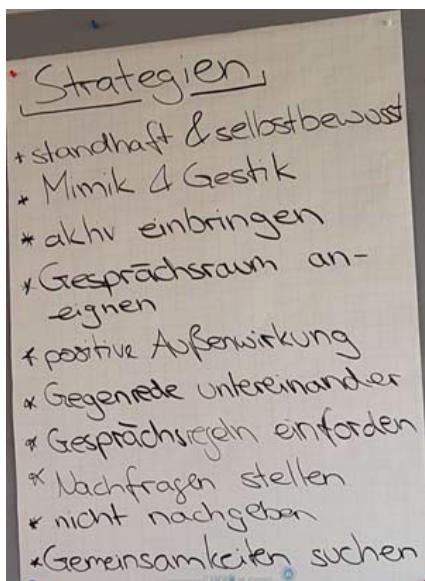 Strategien
* standhaft & selbstbewusst
* Mimik & Gestik
* aktiv einbringen
* Gesprächsraum an-
eignen
* positive Außenwirkung
* Gegenrede untereinander
* Gesprächsregeln einforden
* Nachfragen stellen
* nicht nachgeben
* Gemeinsamkeiten suchen